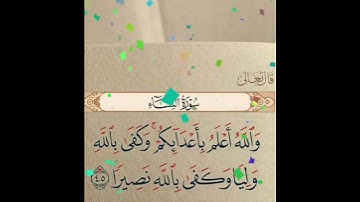 قال تعالى
سُورَةُ النِّسَاءِ
وَاللَّهُ أَعْلَمُ بِأَعْدَائِكُمْ ۚ وَكَفَىٰ بِاللَّهِ
وَلِيًّا وَكَفَىٰ بِاللَّهِ نَصِيرًا ٤٥